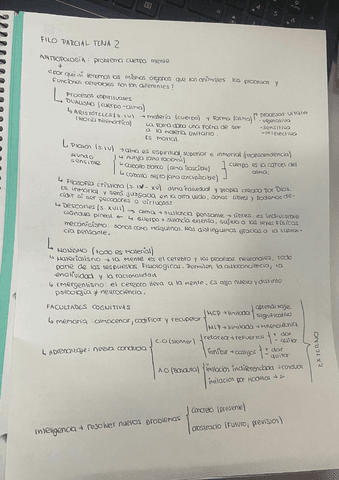 FILO PARCIAL TEMA 2
ANTROPOLOGÍA: problema cuerpo mente
¿Por qué si tenemos los mismos órganos que los animales los procesos y
funciones cerebrales son tan diferentes?
Procesos espirituales
DUALISMO (cuerpo-alma)
ARISTÓTELES (S. IV) → materia (cuerpo) y forma (alma)
La forma daba una forma de ser
a la materia
Es mortal
- vegetativa
- sensitiva
PLATÓN (S. IV) → alma es espiritual superior e inmortal
MUNDO
SENSIBLE
auriga (alma racional)
caballo blanco (alma irascible)
caballo negro (alma concupiscible)
cuerpo es la cárcel del
alma
FILOSOFÍA CRISTIANA alma individual y propia creada por Dios.
es inmortal y será juzgada en la otra vida. Somos libres y podemos de-
cidir si ser pecadores o virtuosos
DESCARTES (S. XVII) → alma = sustancia pensante
glándula pineal ← cuerpo = sustancia extensa, sujeto a las leyes físicas
mecanicismo: somos como máquinas. Nos distinguimos gracias a la
pensante.
MONISMO (todo es material)
MATERIALISMO → la mente es el cerebro y los procesos neuronales, todo
parte de las respuestas fisiológicas. Permiten la autoconciencia, la
emotividad y la racionalidad
EMERGENTISMO: el cerebro lleva a la mente. Es algo nuevo y distinto
psicología ≠ neurociencia.
FACULTADES COGNITIVAS
memoria: almacenar, codificar y recuperar
MCP → limitada
MLP → ilimitada
aprendizaje
significativo
APRENDIZAJE: nueva conducta
C.O (Skinner)
reforzar → refuerzos
+ dar
- quitar
castigar
+ dar
- quitar
A.O (Bandura)
imitación indiferenciada → conducta
imitación por modelos
EXTERNO
Inteligencia → resolver nuevos problemas
concreto (presente)
abstracto (futuro, previsión)